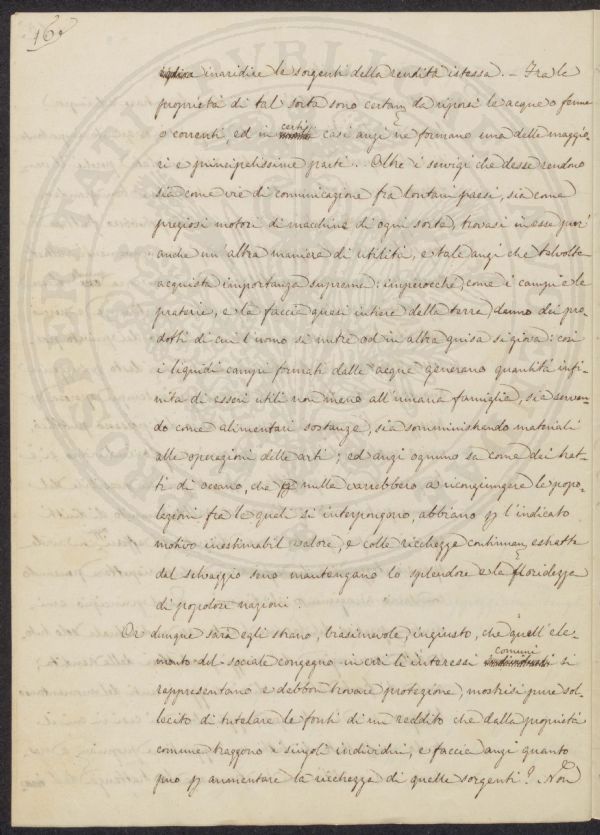 16.
inaridire le sorgenti della rendita istessa. – Fra le
proprietà di tal sorta sono certam da riporsi le acque o ferme
o correnti, ed in certi casi anzi ne formano una delle maggio-
ri e principalissime parti. Oltre i servigi che desse rendono
sia come vie di comunicazione fra lontani paesi, sia come
preziosi motori di macchine di ogni sorta, trovasi in esse pur
anche un'altra maniera di utilità, e tale anzi che talvolta
acquista importanza suprema: imperocchè, come i campi e le
praterie, e la faccia quasi intiera della terra, danno dei pro-
dotti di cui l'uomo si nutre od in altra guisa si giova: così
i liquidi campi formati dalle acque generano quantità infi-
nita di esseri utili non meno all'umana famiglia, sia serven-
do come alimentari sostanze, sia somministrando materiali
alle operazioni delle arti; ed anzi ognuno sa come dei trat-
ti di oceano, che p nulla varrebbero a ricongiungere le popo-
lazioni fra le quali si interpongono, abbiano p l'indicato
motivo inestimabil valore, e colle ricchezze continuam estratte
dal selvaggio seno mantengano lo splendore e la floridezza
di popolose nazioni.
Or dunque sarà egli strano, biasimevole, ingiusto, che quell'ele-
mento del sociale congegno in cui li interessi comuni si
rappresentano e debbon trovare protezione, mostrisi pure sol-
lecito di tutelare le fonti di un reddito che dalla proprietà
comune traggono i singoli individui, e faccia anzi quanto
può p aumentare la ricchezza di quelle sorgenti? Non